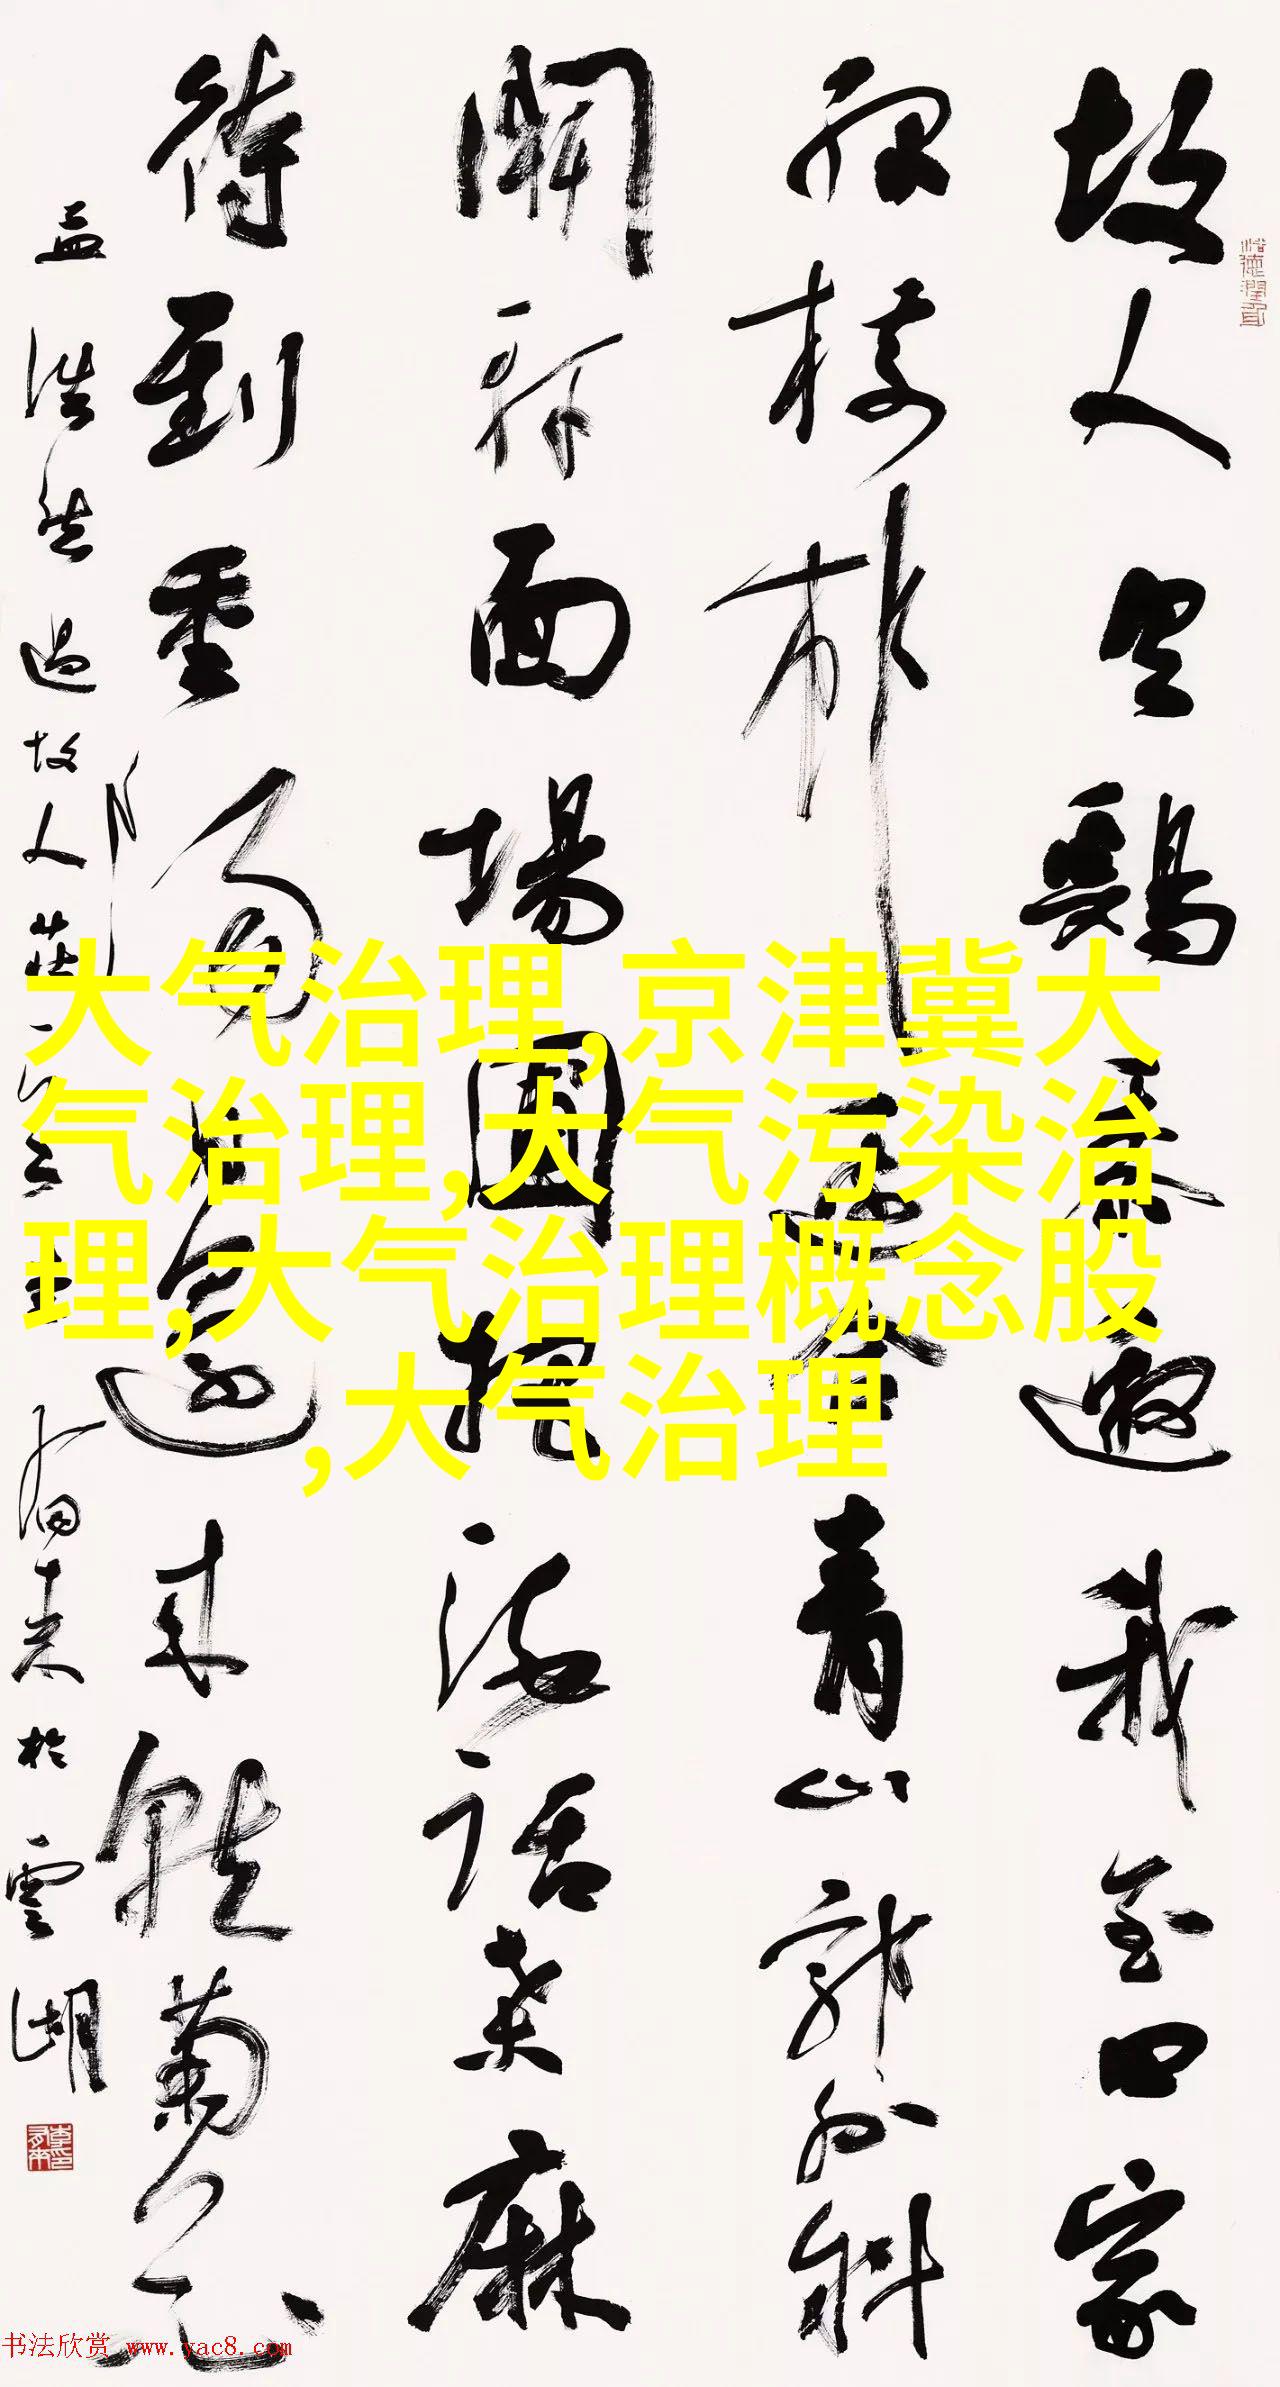 故人具鷄黍邀我至田家
緑樹村邊合青山郭外斜
開軒面場圃把酒話桑麻
待到重陽日還來就菊花
孟浩然過故人莊 有来於雲湖
大气治理,京津冀大
气治理,大气污染治
理,大气治理概念股
,大气治理
书法欣赏 www.yac8.com